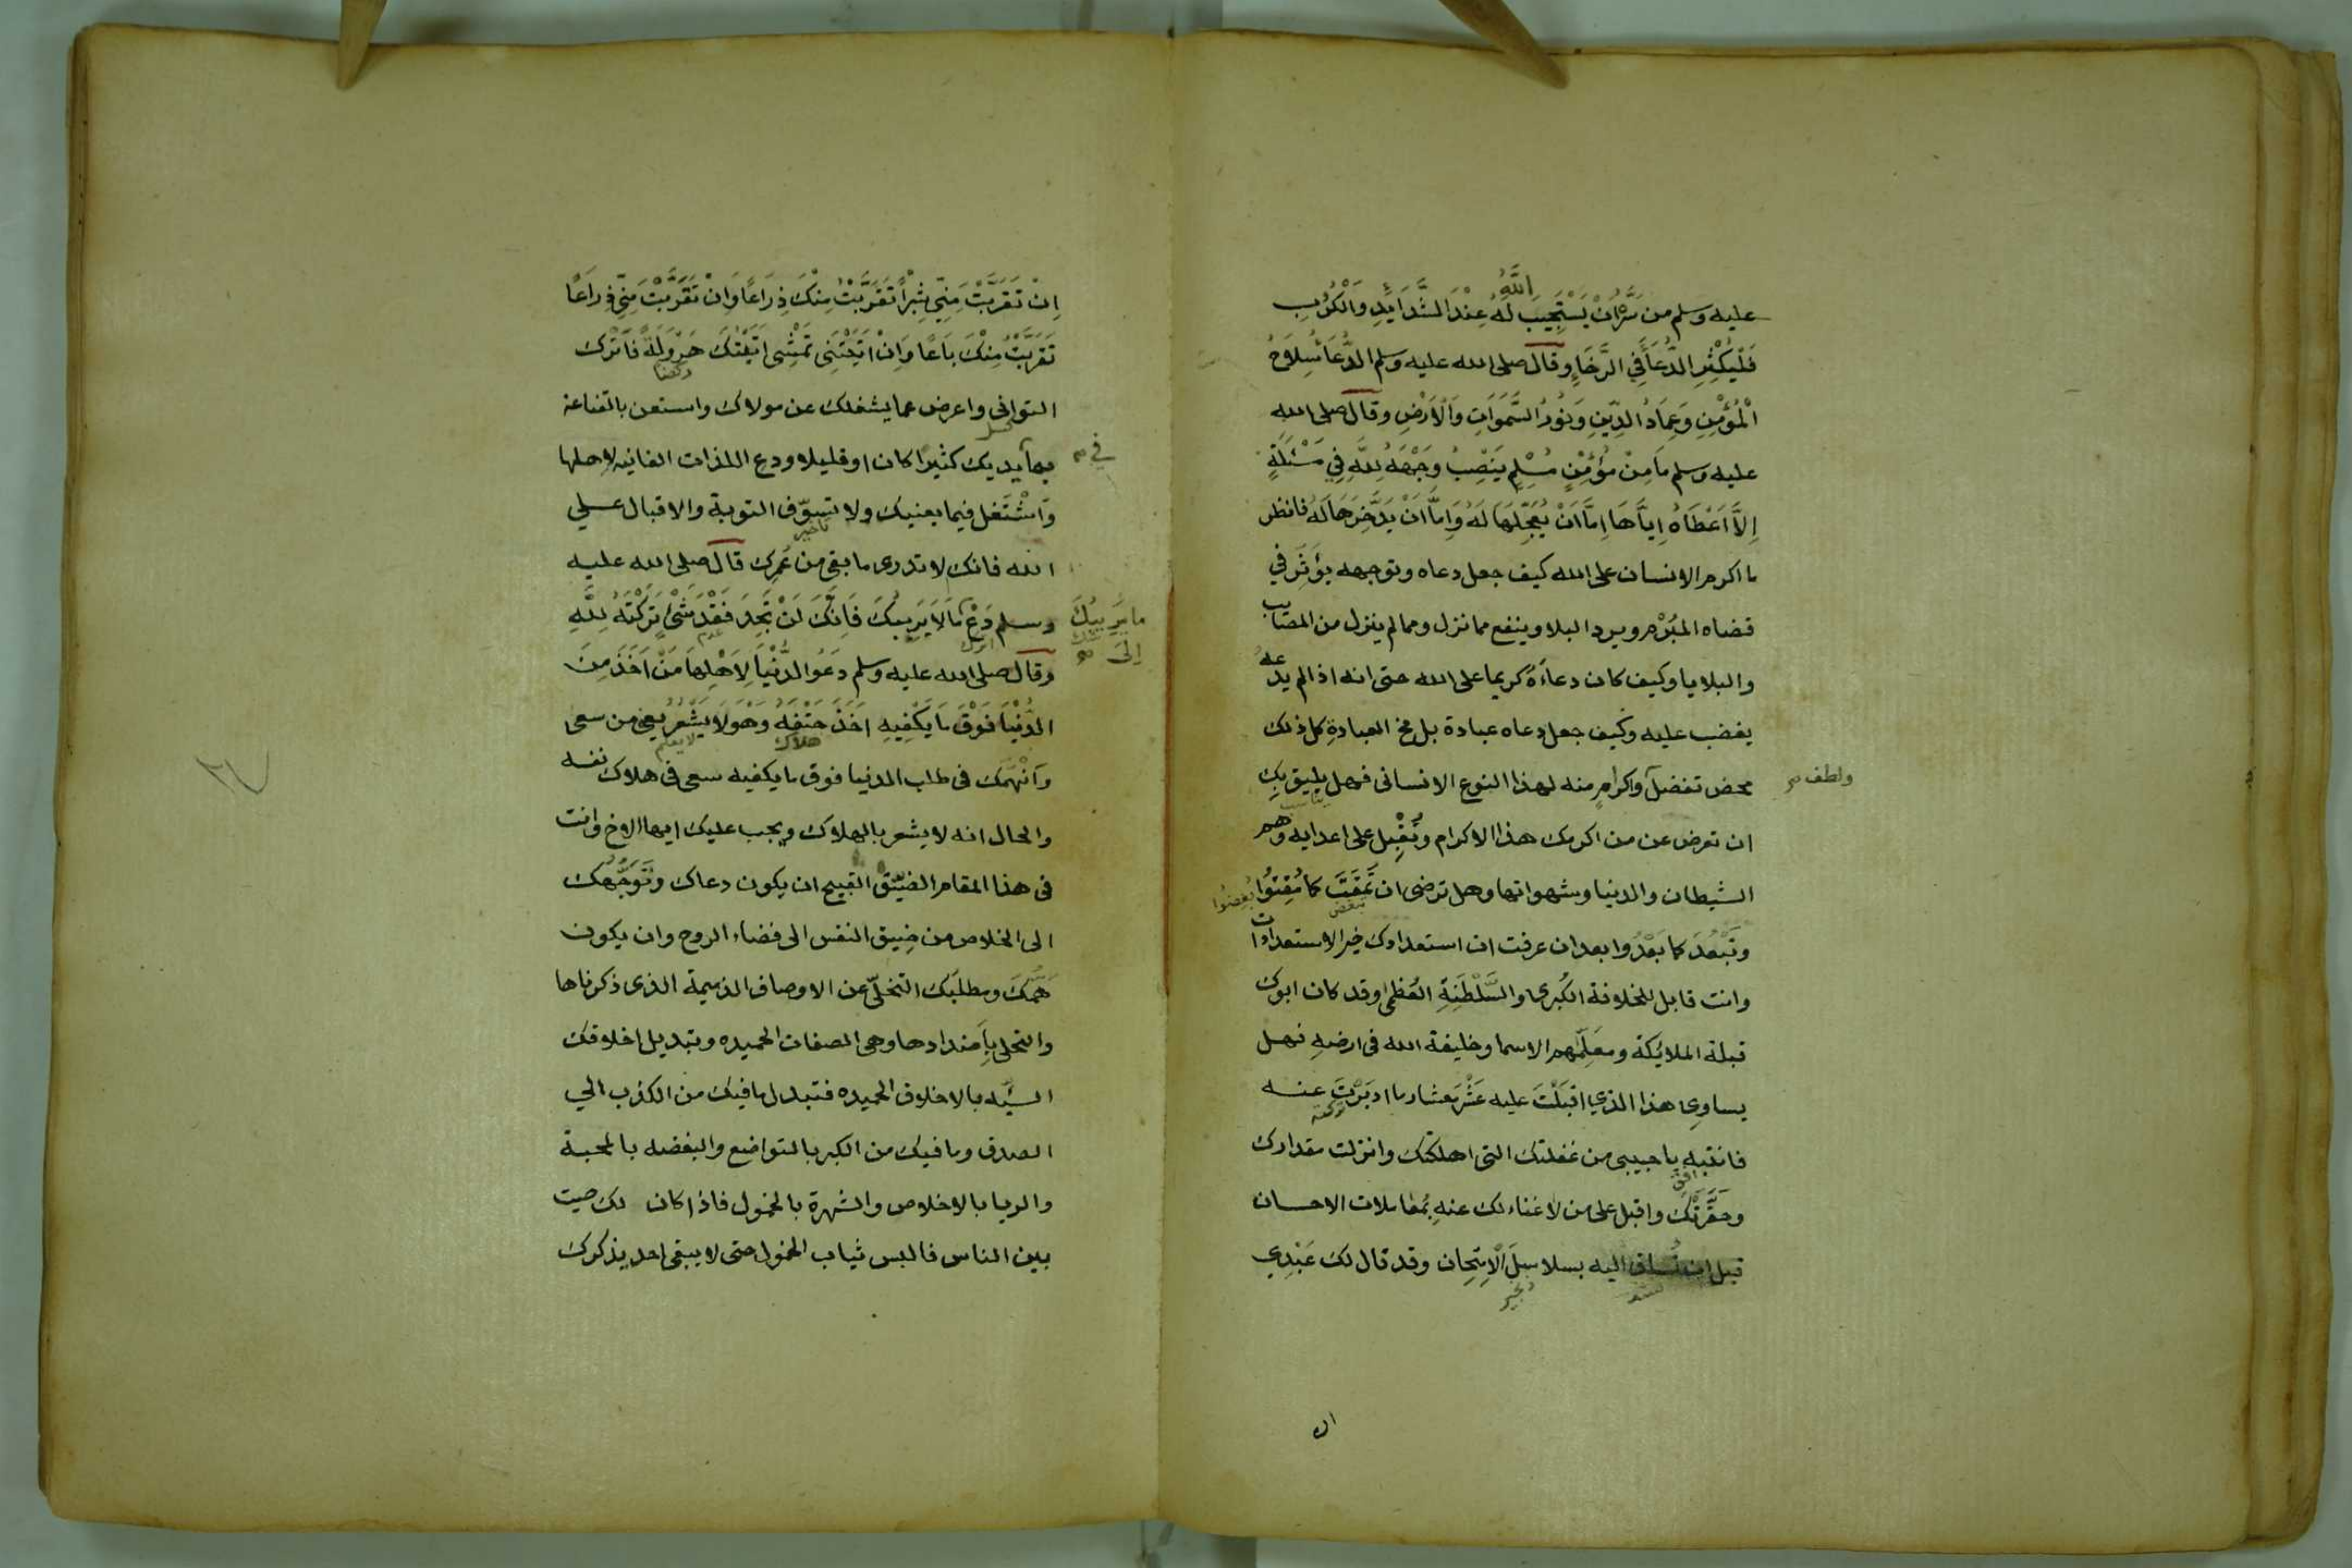 عليه وسلم من سَرَّهُ اَنْ يَسْتَجِيبَ اللَّهُ لَهُ عِنْدَ الشَّدَايِدِ وَالْكُرَبِ
فَلْيُكْثِرِ الدُّعَاَ فِي الرَّخَاءِ وقال صلى الله عليه وسلم الدُّعَاَ سِلَاحُ
الْمُؤْمِنِ وَعِمَادُ الدِّينِ وَنُورُ السَّمَوَاتِ وَالْاَرْضِ وقال صلى الله
عليه وسلم مَا مِنْ مُؤْمِنٍ مُسْلِمٍ يَنْصِبُ وَجْهَهُ لِلَّهِ فِي مَسْئَلَةٍ
اِلَّا اَعْطَاهُ اِيَّاهَا اِمَّا اَنْ يُعَجِّلَهَا لَهُ وَاِمَّا اَنْ يَدَّخِرَهَا لَهُ فانظر
ما اكرم الانسان على الله كيف جعل دعاه وتوجهه يؤثر في
قضاه المُبْرَم ويرد البلا وينفع مما نزل ومما لم ينزل من المصايب
والبلايا وكيف كان دعاءَهُ كريما على الله حتى انه اذا لم يدعه
يغضب عليه وكيف جعل دعاه عبادة بل مخ العبادة كل ذلك
محض تفضل واكرام منه لهذا النوع الانسانى فهل يليق بك
ولطف صح
يناسب
ان تعرض عن من اكرمك هذا الاكرام وتُقْبِل على اعدايه وهم
الشيطان والدنيا وشهواتها وهل ترضى ان تُمْقَتَ كما مُقِتُوا
تبغض
بُغِضُوا
وتَبْعُدَ كما بَعُدُوا بعد ان عرفت ان استعدادك خير الاستعدادات
وانت قابل للخلافة الكُبرى والسَّلْطَنَةِ العُظمى وقد كان ابوك
قبلة الملائكة ومعلِّمهم الاسما وخليفة الله فى ارضه فهل
يساوى هذا الذي اقبَلْتَ عليه عُشْرَ معشار ما ادبَرْتَ عنه
تركته
فانتبه يا حبيبى من غفلتك التى اهلكتك وانزلت مقدارك
افق
وحَقَّرَتْكَ واقبل على من لا غناء لك عنه بمُعاملات الاحسان
قبل ان تُساق اليه بسلاسِلَ الْاِمْتِحان وقد قال لك عَبْدِي
ان
اِنْ تَقَرَّبْتَ مِنِّي شِبْراً تَقَرَّبْتُ مِنْكَ ذِرَاعًا وَاِنْ تَقَرَّبْتَ مِنِّي ذِرَاعًا
تَقَرَّبْتُ مِنْكَ بَاعًا وَاِنْ اَتَيْتَنِى تَمْشِى اَتَيْتُكَ هَرْوَلَةً فاترك
ركضا
التوانى واعرض عما يشغلك عن مولاك واستعن بالقناعة
بما بيديك كثيرًا كان او قليلا ودع اللذات الفانيه لاهلها
في صح
واشْتَغل فيما يعنيك ولا تسوّف التوبة والاقبال على
تأخير
الله فانك لا تدرى ما بقى من عمرك قال صلى الله عليه
وسلم دَعْ مَا يَرِيبُكَ اِلَى صح مَا لَا يَرِيبُكَ فَاِنَّكَ لَنْ تَجِدَ فَقْدَ شَىْءٍ تَرَكْتَهُ لِلَّهِ
اترك
عدم
وقال صلى الله عليه وسلم دَعُوا الدُّنْيَا لِاَهْلِهَا مَنْ اَخَذَ مِنَ
الدُّنْيَا فَوْقَ مَا يَكْفِيهِ اَخَذَ حَتْفَهُ وَهُوَ لَا يَشْعُرُ يعنى من سعى
هلاك
لا يعلم
وانْهَمَك فى طلب الدنيا فوق ما يكفيه سعى فى هلاك نفسه
والحال انه لا يشعر بالهلاك ويجب عليك ايها الاخ وانت
فى هذا المقام الضيّق القبيح ان يكون دعاك وتَوَجُّهُك
الى الخلاص من ضيق النفس الى فضاء الروح وان يكون
هَمَّكَ ومطلبَك التخلّى عن الاوصاف الذميمة الذى ذكرناها
والتحلى بأضدادها وهى الصفات الحميده وتبديل اخلاقك
السيّئه بالاخلاق الحميده فتبدل ما فيك من الكذب الى
الصدق وما فيك من الكبر بالتواضع والبغضه بالمحبة
والريا بالاخلاص والشهرة بالخمول فاذا كان لك صيت
بين الناس فالبس ثياب الخمول حتى لا يبقى احد يذكرك